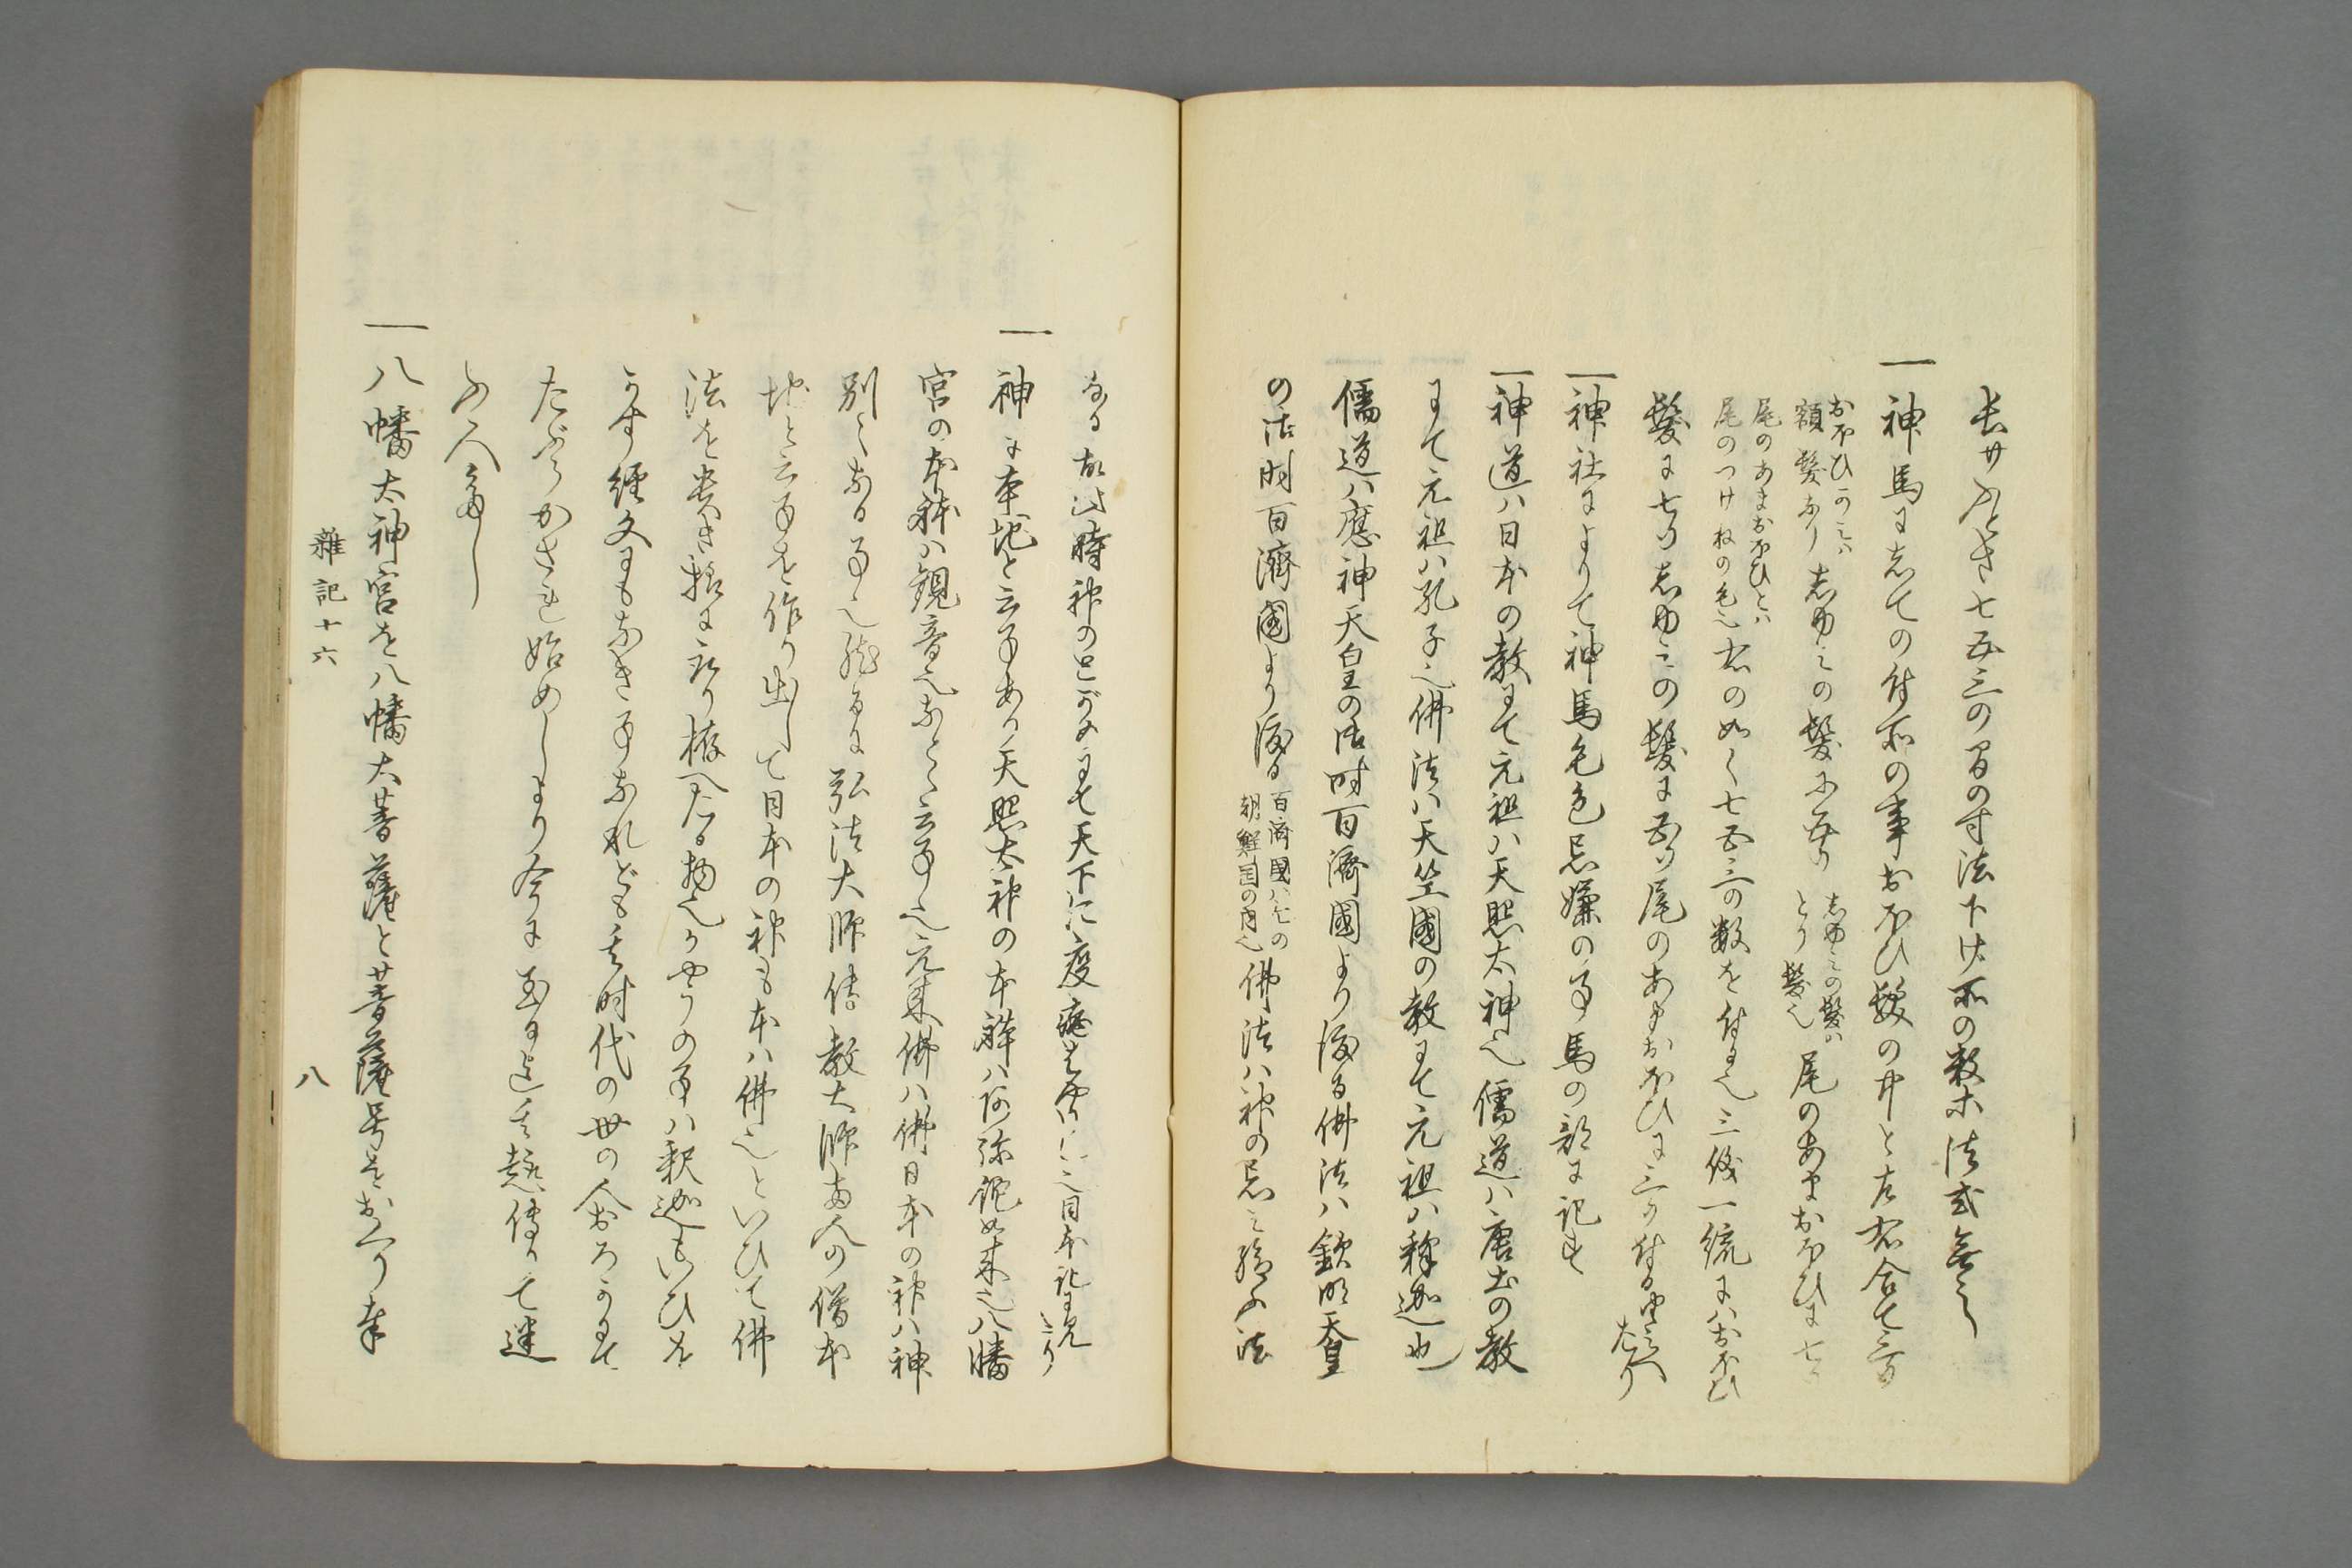 長サふとさ七五三の間の寸法下ケ所の数木法式無之
一神馬にしての付所の事おほひ髪の中と左右合て三方
おほひのかみハ
額髪なり
しめかみの髪に五ツ
しめかみの髪ハ
とり髪也
尾のあまおほひに七ツ
尾のあまおほひとハ
尾のつけねの毛也
右の如く七五三の数を付る也三儀一統にハおほひ
髪に七ツしめかみの髪に五ツ尾のあまおほひに三ツ付る由みへ
たり
一神社によりて神馬毛色忌嫌の事馬の部に記す
一神道ハ日本の教にて元祖ハ天照太神也儒道ハ唐土の教
にて元祖ハ孔子也佛法ハ天竺國の教にて元祖ハ釋迦也
儒道ハ應神天皇の御時百濟國より渡る佛法ハ欽明天皇
の御時百濟國より渡る
百濟國ハ今の
朝鮮国の内也
佛法ハ神の忌ミ給ふ法
なる故此時神のとがめにて天下に疫癘はやりし也日本紀に見
えたり
一神に本地と云事あり天照太神の本躰ハ阿弥陀如来也八幡
宮の本躰ハ観音也なとゝ云事也元来佛ハ佛日本の神ハ神
別々なる事也然るに弘法大師傳教大師両人の僧本
地と云事を作り出して日本の神も本ハ佛也といひて佛
法を貴き物に取り拵へたる物也かやうの事ハ釈迦もいひを
かす經文にもなき事なれども其時代の世の人おろかにて
たぶらかされ始めしより今に至る迄其趣傳りて迷
ふ人多し
一八幡太神宮を八幡大菩薩と菩薩号をおくり奉
雜記十六
八